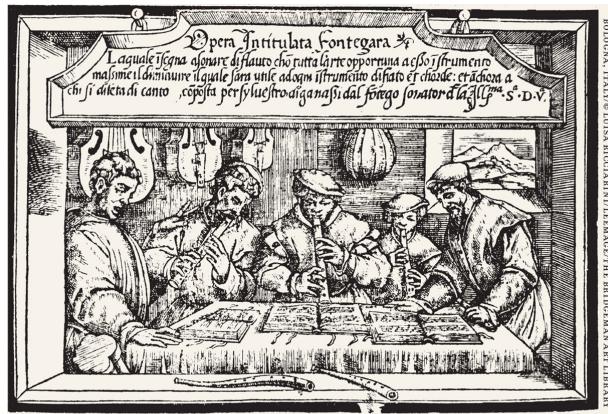 Opera Intitulata Fontegara
Laquale ĩsegna a sonare di flauto chõ tutta l'arte opportuna a esso ĩstrumento
massime il diminuire ilquale sara utile ad ogni ĩstrumento di fiato et chorde: et ãchora a
chi si dileta di canto, cõposta per sylvestro di ganassi dal fõtego sonator d la Ill.ma S.a D.V.
BOLOGNA, ITALY/ LUISA RICCIARINI/LEEMAGE/THE BRIDGEMAN ART LIBRARY